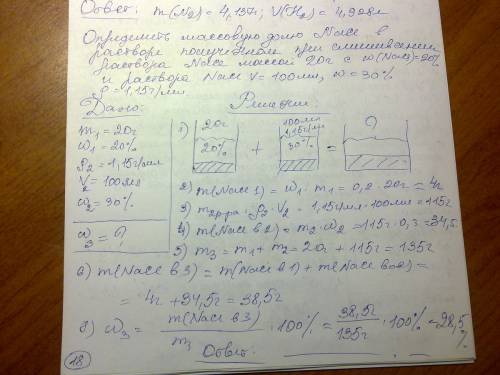 Ответ: m(N₂) = 4,137г; V(H₂) = 4,928л
Определить массовую долю NaCl в
растворе полученном при смешивании
раствора NaCl массой 20г с w(NaCl)=20%
и раствора NaCl V=100мл, w=30%
ρ=1,15г/мл
Дано: Решение:
m₁=20г
w₁=20%
ρ₂=1,15г/мл
V₂=100мл
w₂=30%
w₃=?
1) 20г 20% + 100мл 1,15г/мл 30% = ?
2) m(NaCl 1) = w₁·m₁ = 0,2·20г = 4г
3) m₂р-ра = ρ₂·V₂ = 1,15г/мл·100мл = 115г
4) m(NaCl в 2) = m₂·w₂ = 115г·0,3 = 34,5г
5) m₃ = m₁ + m₂ = 20г + 115г = 135г
6) m(NaCl в 3) = m(NaCl в 1) + m(NaCl во 2) =
= 4г + 34,5г = 38,5г
7) w₃ = m(NaCl в 3)/m₃ · 100% = 38,5г/135г · 100% = 28,5%
Ответ:
18